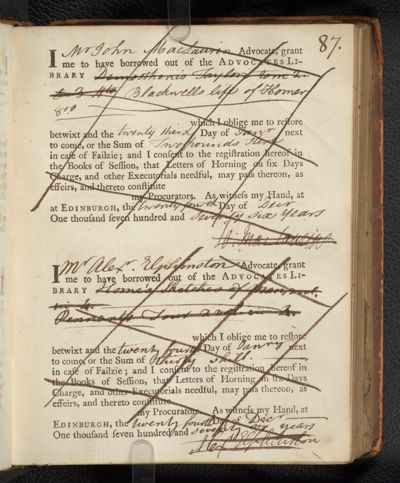 87.
I Mr John MacLaurin Advocate, grant
me to have borrowed out of the ADVOCATES LI-
BRARY Demosthenis Taylor tom 2.
& 3 4to Blackwells life of Homer
8vo
which I oblige me to restore
betwixt and the twenty third Day of Janry next
to come, or the Sum of Two pounds Sterl
in case of Failzie; and I consent to the registration hereof in
the Books of Session, that Letters of Horning on six Days
Charge, and other Executorials needful, may pass thereon, as
effeirs, and thereto constitute
my Procurators. As witness my Hand, at
at EDINBURGH, the twenty third Day of Decr
One thousand seven hundred and Seventy six years
I Mr Alexr. Elphinston Advocate, grant
me to have borrowed out of the ADVOCATES LI-
BRARY Home's Sketches of man,
in 4.
Tour in 4.
which I oblige me to restore
betwixt and the twenty fourth Day of Janry next
to come, or the Sum of thirty Shill
in case of Failzie; and I consent to the registration hereof in
the Books of Session, that Letters of Horning on six Days
Charge, and other Executorials needful, may pass thereon, as
effeirs, and thereto constitute
my Procurators. As witness my Hand, at
EDINBURGH, the twenty fourth Day of Decr
One thousand seven hundred and seventy six years
Alexr Elphinston